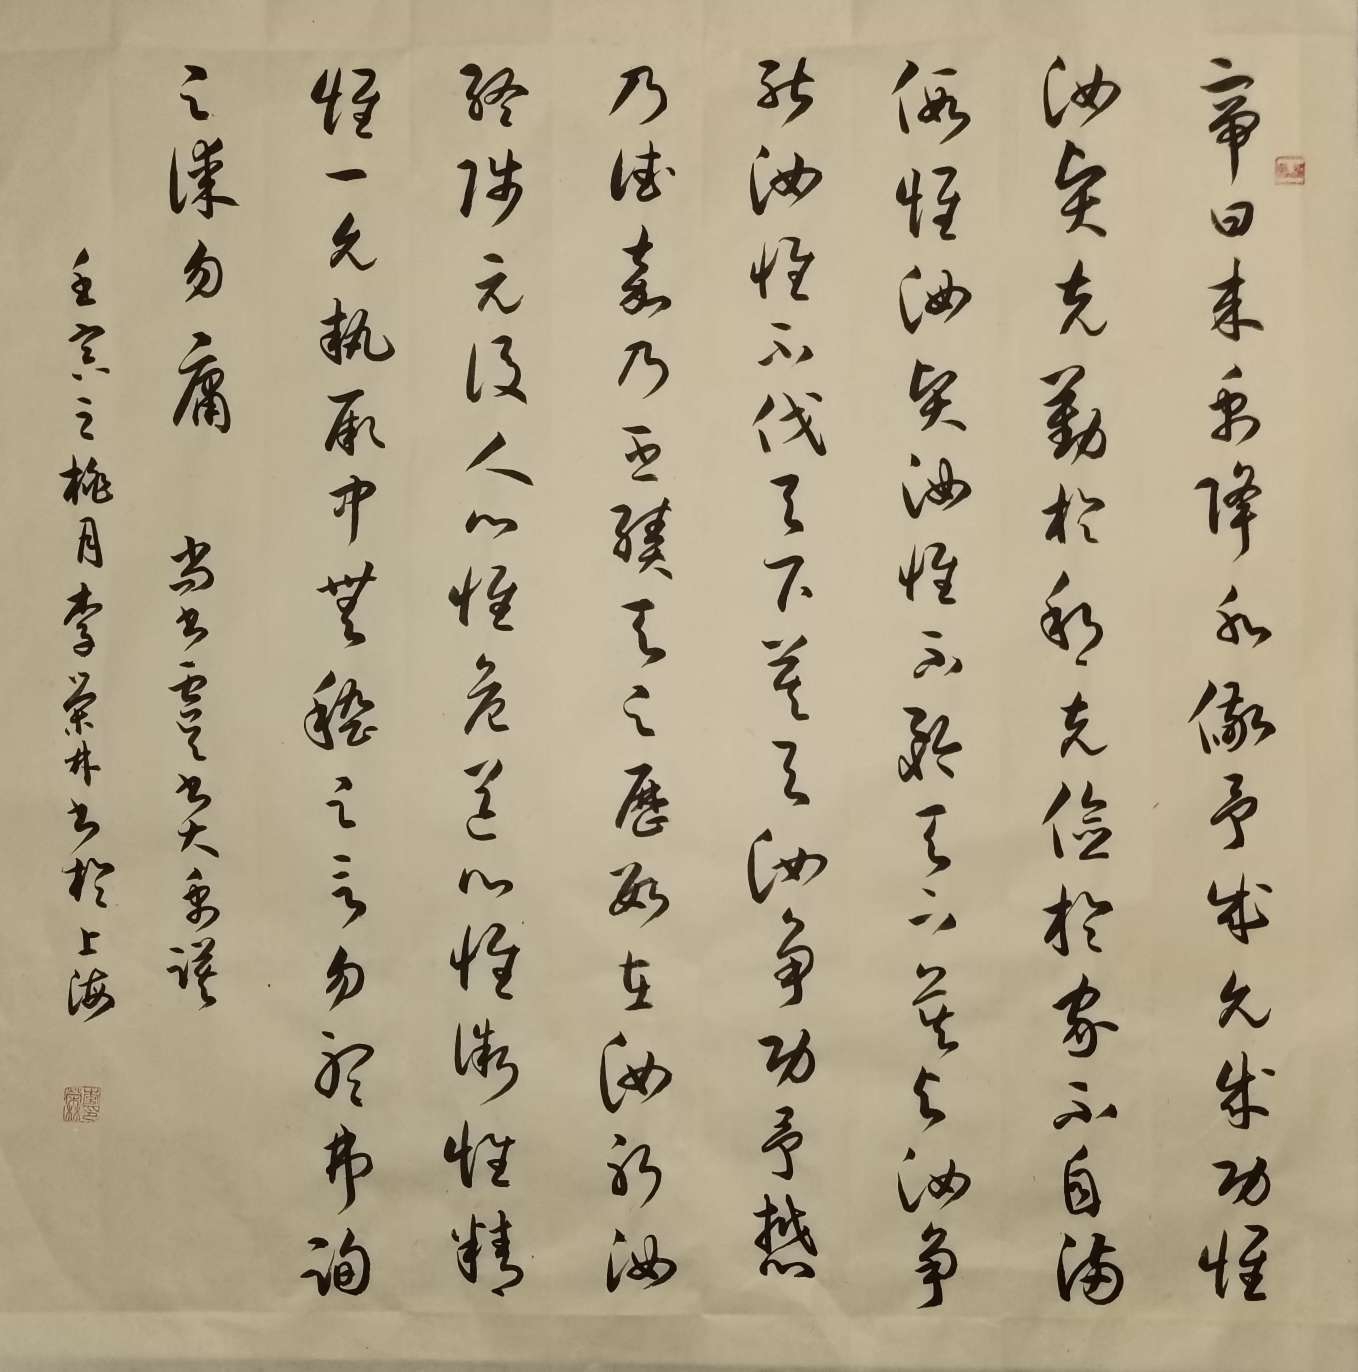 帝曰来禹降水儆予成允成功惟
汝賢克勤於邦克儉於家不自滿
假惟汝賢汝惟不矜天下莫与汝争
能汝惟不伐天下莫与汝争功予懋
乃德嘉乃丕績天之歷數在汝躬汝
終陟元後人心惟危道心惟微惟精
惟一允執厥中無稽之言勿聽弗詢
之謀勿庸 尚書虞書大禹謨
壬寅之桃月李榮林書於上海